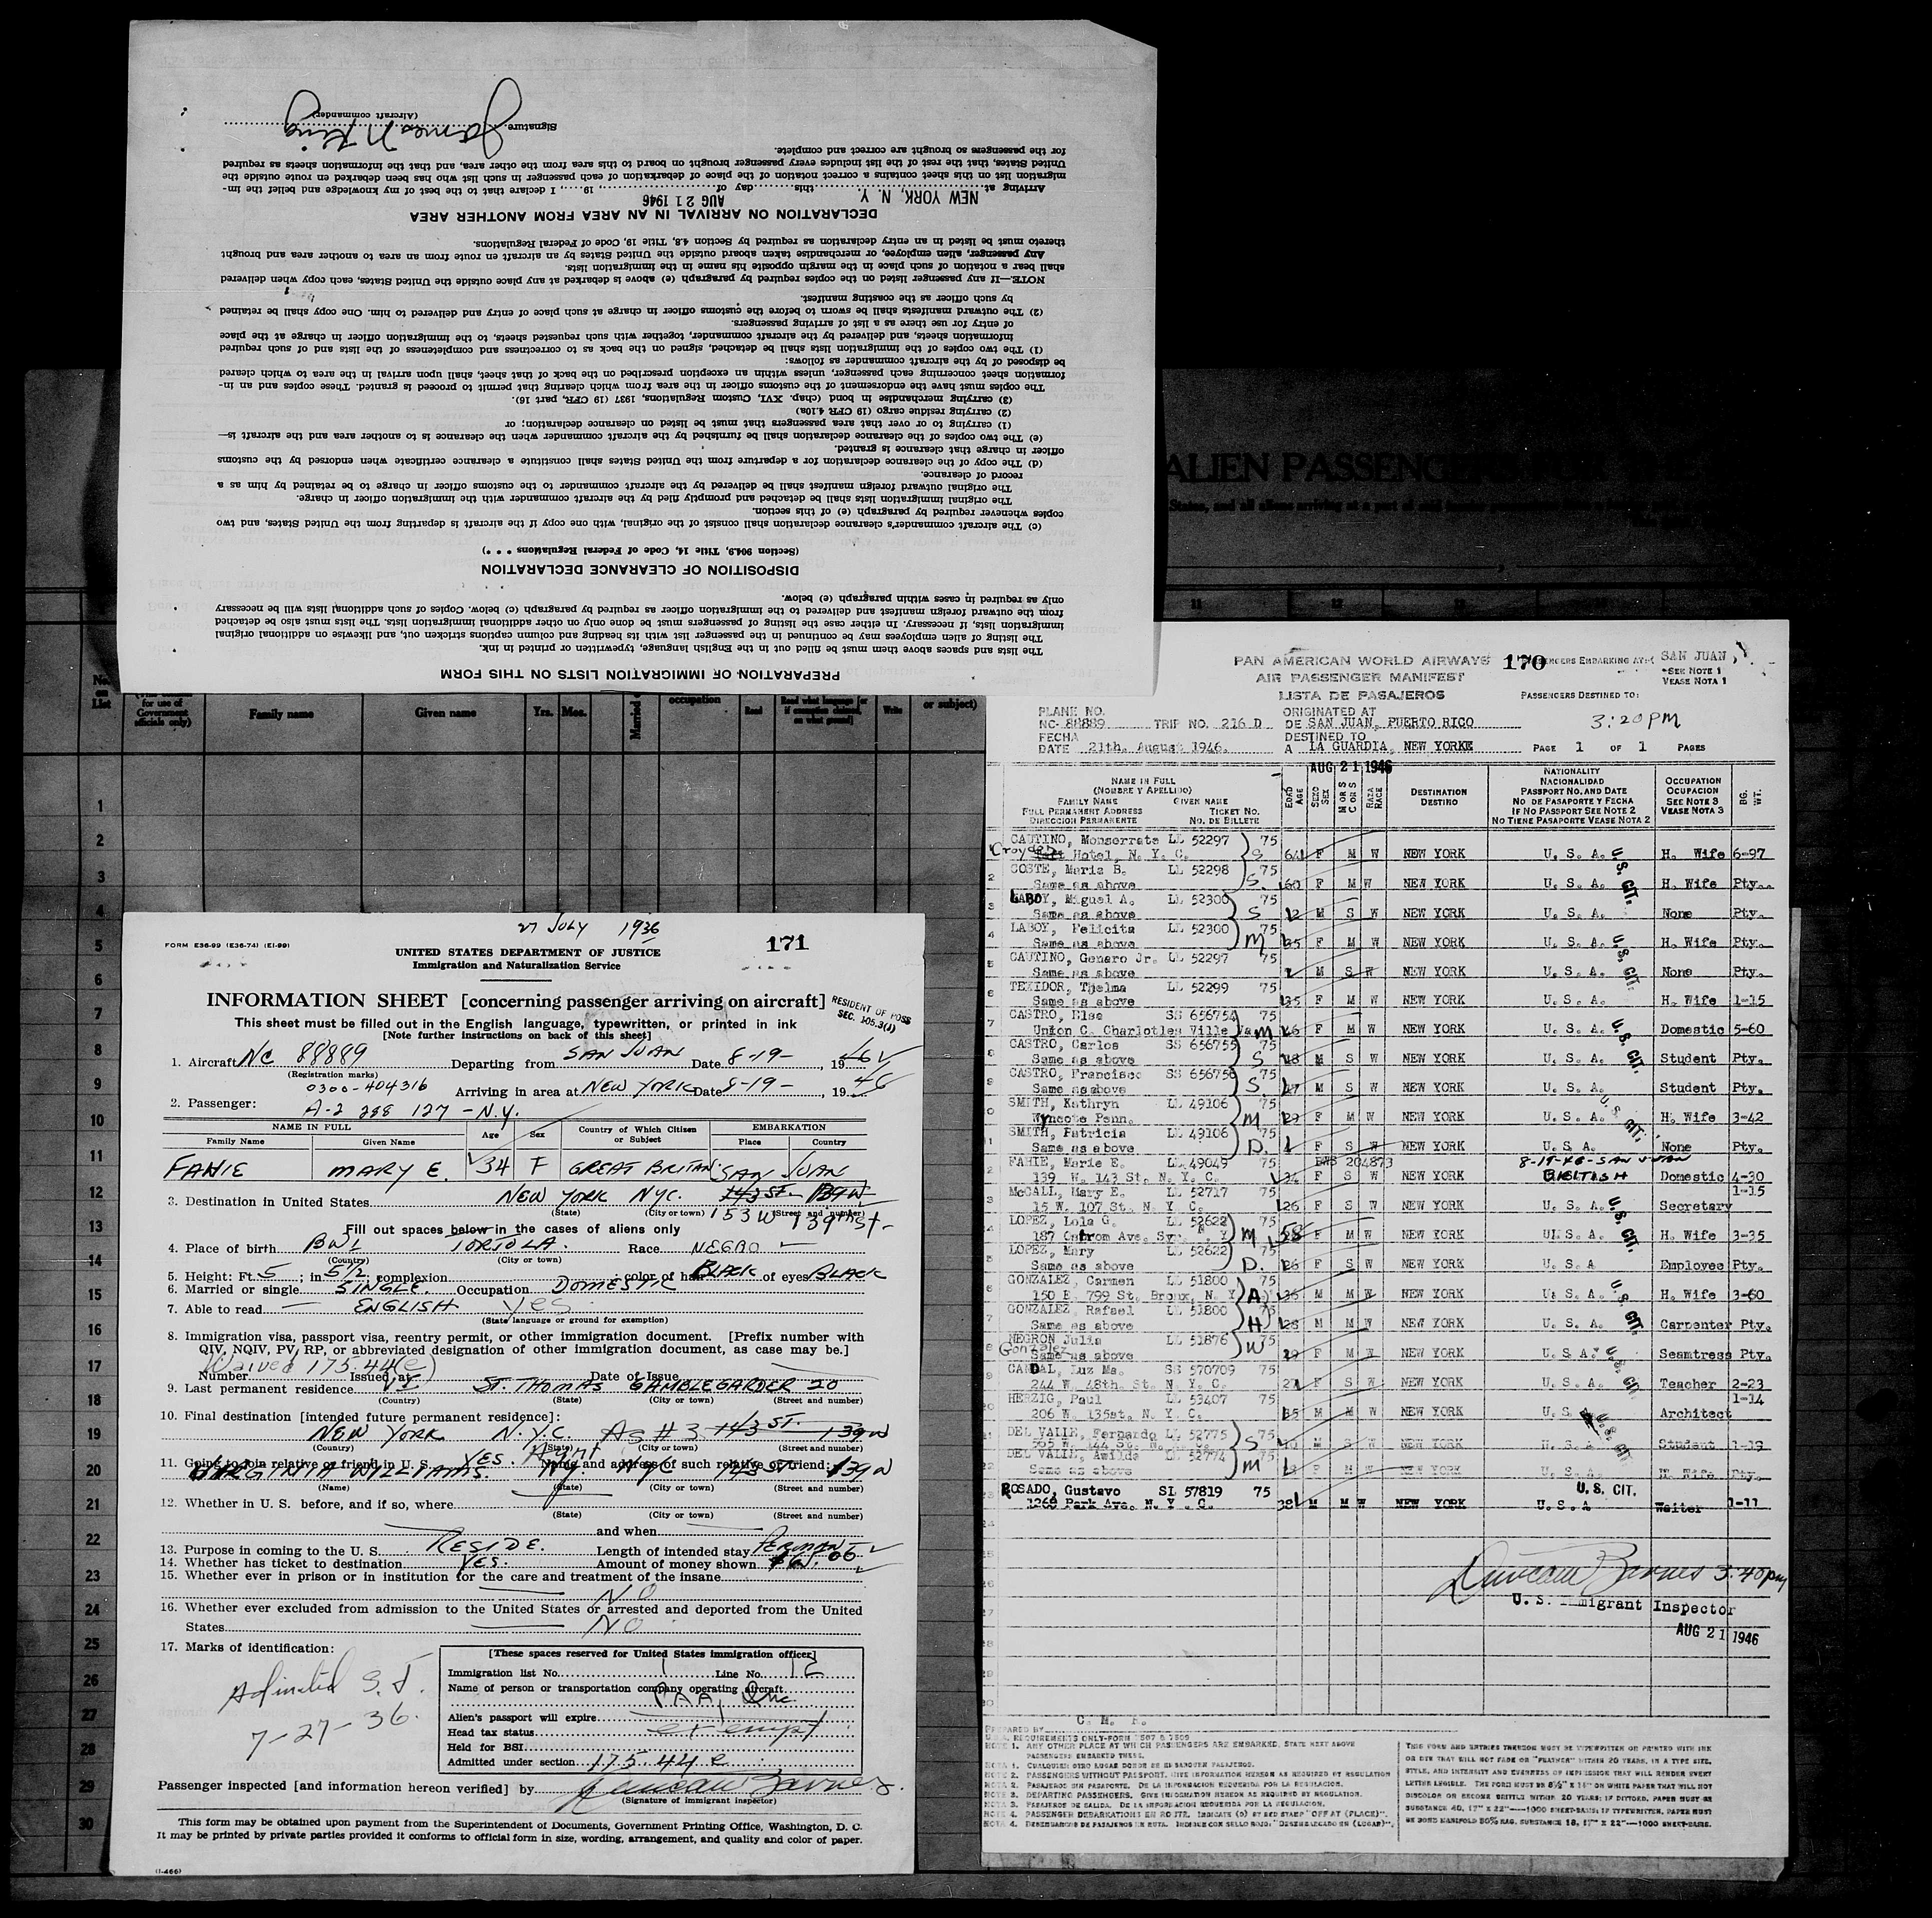 Signature. James N King
(Aircraft commander)
for the passengers so brought are correct and complete.
United States, that the rest of the list includes every passenger brought on board to this area from the other area, and that the information sheets as required
migration list on this sheet contains a correct notation of the place of debarkation of each passenger in such list who has been debarked en route outside the
Arriving at NEW YORK, N. Y. this day of AUG 21 1946, 19...., I declare that to the best of my knowledge and belief the im-
DECLARATION ON ARRIVAL IN AN AREA FROM ANOTHER AREA
thereto must be listed in an entry declaration as required by Section 4.8, Title 19, Code of Federal Regulations.
Any passenger, alien employee, or merchandise taken aboard outside the United States by an aircraft en route from an area to another area and brought
shall bear a notation of such place in the margin opposite his name in the immigration lists.
NOTE.—If any passenger listed on the copies required by paragraph (e) above is debarked at any place outside the United States, each copy when delivered
by such officer as the coasting manifest.
(2) The outward manifests shall be sworn to before the customs officer in charge at such place of entry and delivered to him. One copy shall be retained
of entry for use there as a list of arriving passengers.
information sheets, and delivered by the aircraft commander, together with such requested sheets, to the immigration officer in charge at the place
(1) The two copies of the immigration lists shall be detached, signed on the back as to correctness and completeness of the lists and of such required
be disposed of by the aircraft commander as follows:
formation sheet concerning each passenger, unless within an exception prescribed on the back of that sheet, shall upon arrival in the area to which cleared
The copies must have the endorsement of the customs officer in the area from which clearing that permit to proceed is granted. These copies and an in-
(3) carrying merchandise in bond (chap. XVI, Custom Regulations, 1937 (19 CFR, part 16).
(2) carrying residue cargo (19 CFR 4.10a)
(1) carrying to or over that area passengers that must be listed on clearance declaration; or
(e) The two copies of the clearance declaration shall be furnished by the aircraft commander when the clearance is to another area and the aircraft is—
officer in charge that clearance is granted.
(d) The copy of the clearance declaration for a departure from the United States shall constitute a clearance certificate when endorsed by the customs
record of clearance.
The original outward foreign manifest shall be delivered by the aircraft commander to the customs officer in charge to be retained by him as a
The original immigration lists shall be detached and promptly filed by the aircraft commander with the immigration officer in charge.
copies whenever required by paragraph (e) of this section.
(c) The aircraft commander's clearance declaration shall consist of the original, with one copy if the aircraft is departing from the United States, and two
(Section 904.9, Title 14, Code of Federal Regulations • • •)
DISPOSITION OF CLEARANCE DECLARATION
only as required in cases within paragraph (e) below.
from the outward foreign manifest and delivered to the immigration officer as required by paragraph (c) below. Copies of such additional lists will be necessary
immigration lists, if necessary. In either case the listing of passengers must be done only on other additional immigration lists. The lists must also be detached
The listing of alien employees may be continued in the passenger list with its heading and column captions stricken out, and likewise on additional original
The lists and spaces above them must be filled out in the English language, typewritten or printed in ink.
PREPARATION OF IMMIGRATION LISTS ON THIS FORM
ALIEN PASSENGERS
States, and all aliens arriving at a port of
11 12
No. on List
for use of Government officials only)
Family name Given name Yrs. Mos. Married occupation Read Write or subject)
1
2
3
4
5
6
7
8
9
10
11
12
13
14
15
16
17
18
19
20
21
22
23
24
25
26
27
28
29
30
27 JULY 1936
FORM E36-99 (E36-74) (E1-99)
171
UNITED STATES DEPARTMENT OF JUSTICE
Immigration and Naturalization Service
INFORMATION SHEET [concerning passenger arriving on aircraft]
RESIDENT OF POSS
SEC. 105.3(1)
This sheet must be filled out in the English language, typewritten, or printed in ink
[Note further instructions on back of this sheet]
1. Aircraft NC 88889 Departing from SAN JUAN Date 8-19-, 1946
(Registration marks)
0300-404316 Arriving in area at NEW YORK Date 8-19-, 1946
2. Passenger: A-2 298 127 - N.Y.
NAME IN FULL Age Sex Country of Which Citizen or Subject EMBARKATION
Family Name Given Name Place Country
FAHIE MARY E. 34 F GREAT BRITAN SAN JUAN
3. Destination in United States NEW YORK NYC. 143 ST- 139 W
(State) (City or town) (Street and number)
153 W 139th St-
Fill out spaces below in the cases of aliens only
4. Place of birth BWI TORTOLA. Race NEGRO
(Country) (City or town)
5. Height: Ft. 5; in 5 1/2 complexion; color of hair BLACK of eyes BLACK
6. Married or single SINGLE. Occupation DOMESTIC
7. Able to read — ENGLISH yes
(State language or ground for exemption)
8. Immigration visa, passport visa, reentry permit, or other immigration document. [Prefix number with
QIV, NQIV, PV, RP, or abbreviated designation of other immigration document, as case may be.]
Waived 175.44(e)
Number Issued at Date of Issue
9. Last permanent residence VI ST. THOMAS GAMBLEGARDER 20
(Country) (State) (City or town) (Street and number)
10. Final destination [intended future permanent residence]:
NEW YORK N.Y.C. As # 3 143 ST. 139 W
(Country) (State) (City or town) (Street and number)
11. Going to join relative or friend in U. S. YES. Aunt Name and address of such relative or friend:
VIRGINIA WILLIAMS. NY. NYC 143 ST 139 W
(Name) (State) (City or town) (Street and number)
12. Whether in U. S. before, and if so, where
(State) (City or town) (Street and number)
and when
13. Purpose in coming to the U. S. RESIDE. Length of intended stay PERMANT
14. Whether has ticket to destination YES. Amount of money shown
15. Whether ever in prison or in institution for the care and treatment of the insane
NO
16. Whether ever excluded from admission to the United States or arrested and deported from the United
States NO
17. Marks of identification:
Admitted S. J.
7-27-36.
[These spaces reserved for United States immigration officer]
Immigration list No. 1 Line No. 12
Name of person or transportation company operating aircraft
PAA, Inc
Alien's passport will expire
Head tax status exempt
Held for BSI
Admitted under section 175.44 e
Passenger inspected [and information hereon verified] by Duncan Barnes.
(Signature of immigrant inspector)
This form may be obtained upon payment from the Superintendent of Documents, Government Printing Office, Washington, D. C.
It may be printed by private parties provided it conforms to official form in size, wording, arrangement, and quality and color of paper.
(1-466)
PAN AMERICAN WORLD AIRWAYS 170 PASSENGERS EMBARKING AT: SAN JUAN
AIR PASSENGER MANIFEST SEE NOTE 1
LISTA DE PASAJEROS VEASE NOTA 1
PASSENGERS DESTINED TO:
PLANE NO. ORIGINATED AT
NC- 88889 TRIP NO. 216 D DE SAN JUAN, PUERTO RICO 3:20 PM
FECHA DESTINED TO
DATE 21th. August 1946. A LA GUARDIA, NEW YORKE PAGE 1 OF 1 PAGES
AUG 21 1946
NAME IN FULL
(NOMBRE Y APELLIDO)
FAMILY NAME GIVEN NAME
FULL PERMANENT ADDRESS TICKET NO.
DIRECCION PERMANENTE NO. DE BILLETE
EDAD AGE SEXO SEX M OR S C OR S RAZA RACE
DESTINATION DESTINO
NATIONALITY
NACIONALIDAD
PASSPORT NO. AND DATE
NO DE PASAPORTE Y FECHA
IF NO PASSPORT SEE NOTE 2
NO TIENE PASAPORTE VEASE NOTA 2
OCCUPATION
OCUPACION
SEE NOTE 3
VEASE NOTA 3
BG. WT.
CAUTINO, Monserrate LL 52297 75
Croydon Hotel, N. Y. C. S 64 F M W NEW YORK U. S. A. U. S. CIT. H. Wife 6-97
COSTE, Maria B. LL 52298 75
Same as above S. 60 F M W NEW YORK U. S. A. H. Wife Pty.
LABOY, Miguel A. LL 52300 75
Same as above S 12 M S W NEW YORK U. S. A. None Pty.
LABOY, Felicita LL 52300 75
Same as above M 35 F M W NEW YORK U. S. A. U. S. CIT. H. Wife Pty.
CAUTINO, Genaro Jr. LL 52297
Same as above M S W NEW YORK U. S. A. None Pty.
TEXIDOR, Thelma LL 52299 75
Same as above 35 F M W NEW YORK U. S. A. H. Wife 1-15
CASTRO, Else SS 656754
Union C. Charlotles Ville Va M 46 F M W NEW YORK U. S. A. U. S. CIT. Domestic 5-60
CASTRO, Carlos SS 656755 75
Same as above S 18 M S W NEW YORK U. S. A. Student Pty.
CASTRO, Francisco SS 656756 75
Same as above S 17 M S W NEW YORK U. S. A. Student Pty.
SMITH, Kathryn LL 49106 75
Wyncote Penn. M 29 F M W NEW YORK U. S. A. U. S. CIT. H. Wife 3-42
SMITH, Patricia LL 49106 75
Same as above D. 1 F S W NEW YORK U. S A. None Pty.
FAHIE, Marie E. LL 49049 75 204873 8-19-46-SAN JUAN
139 W. 143 St. N. Y. C. 34 F S W NEW YORK BRITISH Domestic 4-30
McCALL, Mary E. LL 52717 75 1-15
15 W. 107 St. N. Y. C. 26 F S W NEW YORK U. S. A. U. S. CIT. Secretary
LOPEZ, Lola G. LL 52622 75
187 Ostrom Ave. Syr. N. Y M 58 F M W NEW YORK U. S. A H. Wife 3-35
LOPEZ, Mary LL 52622 75
Same as above D. 26 F S W NEW YORK U. S. A Employee Pty.
GONZALEZ, Carmen LL 51800 75
150 E. 799 St. Bronx, N. Y A. 36 M M W NEW YORK U. S. A. U. S. CIT. H. Wife 3-60
GONZALEZ, Rafael LL 51800 75
Same as above H 28 M M W NEW YORK U. S. A Carpenter Pty.
NEGRON Julia LL 51876 75
Gonzalez Same as above W 29 F M W NEW YORK U. S. A. U. S. CIT. Seamtress Pty.
CANDAL, Luz Ma. SS 570709 75
244 W. 48th. St. N. Y. C. 27 F S W NEW YORK U. S. A. Teacher 2-23
HERZIG, Paul LL 53407 75 1-14
206 W. 135st. N. Y. C. 35 M M W NEW YORK U. S. A U. S. CIT. Architect
DEL VALLE, Fernando LL 52775 75
565 W. 144 St. N. Y. C. S M S W NEW YORK U. S. A. Student 1-19
DEL VALLE, Awilda LL 52774 75
Same as above M F M W NEW YORK U. S. A. H. Wife Pty.
ROSADO, Gustavo SL 57819 75 U. S. CIT.
1268 Park Ave. N. Y . C. 38 M M W NEW YORK U. S. A Waiter 1-11
Duncan Barnes 3:40 pm
U. S. Immigrant Inspector
AUG 21 1946
PREPARED BY C. M. R.
U.S.A. REQUIREMENTS ONLY-FORM 7507 & 7509
NOTE 1. ANY OTHER PLACE AT WHICH PASSENGERS ARE EMBARKED, STATE NEXT ABOVE
PASSENGERS EMBARKED THERE.
NOTA 1. CUALQUIER OTRO LUGAR DONDE SE EMBARQUEN PASAJEROS.
NOTE 2. PASSENGERS WITHOUT PASSPORT. GIVE INFORMATION HEREON AS REQUIRED BY REGULATION
NOTA 2. PASAJEROS SIN PASAPORTE. DE LA INFORMACION REQUERIDA POR LA REGULACION.
NOTE 3. DEPARTING PASSENGERS. GIVE INFORMATION HEREON AS REQUIRED BY REGULATION.
NOTA 3. PASAJEROS DE SALIDA. DE LA INFORMACION REQUERIDA POR LA REGULACION.
NOTE 4. PASSENGER DEBARKATIONS EN ROUTE. INDICATE (O) BY RED STAMP "OFF AT (PLACE)".
NOTA 4. DESEMBARCOS DE PASAJEROS EN RUTA. INDIQUE CON SELLO ROJO. "DESEMBARCADO EN (LUGAR)".
THIS FORM AND ENTRIES THEREON MUST BE TYPEWRITTEN OR PRINTED WITH INK
OR DYE THAT WILL NOT FADE OR "FEATHER" WITHIN 20 YEARS, IN A TYPE SIZE,
STYLE, AND INTENSITY AND EVENNESS OF IMPRESSION THAT WILL RENDER EVERY
LETTER LEGIBLE. THE FORM MUST BE 8½" X 14" ON WHITE PAPER THAT WILL NOT
DISCOLOR OR BECOME BRITTLE WITHIN 20 YEARS; IF DITTOED, PAPER MUST BE
SUBSTANCE 40, 17" X 22"—1000 SHEET-BASIS; IF TYPEWRITTEN, PAPER MUST
BE BOND MANIFOLD 50% RAG, SUBSTANCE 18, 17" X 22"—1000 SHEET-BASIS.